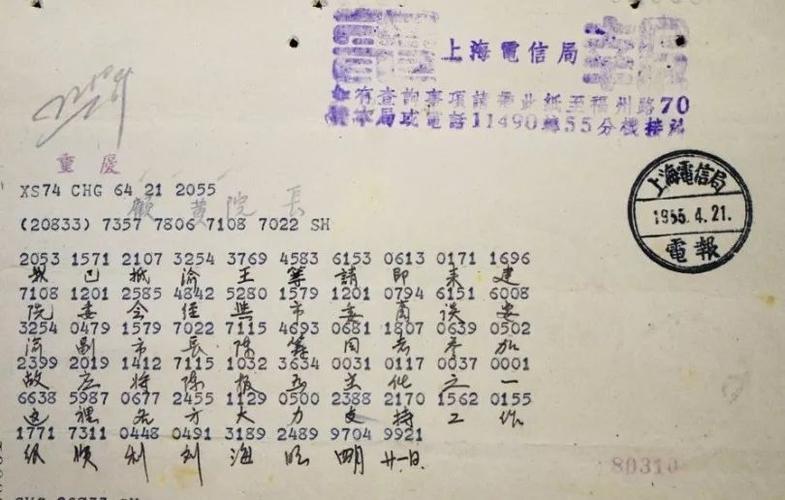 上海電信局
如有查詢事項請帶此紙至福州路70
號本局或電話11490轉55分機接洽
重慶
XS74 CHG 64 21 2055
顧黃院長
(20833) 7357 7806 7108 7022 SH
上海電信局
1955.4.21.
電報
2053 1571 2107 3254 3769 4583 6153 0613 0171 1696
我已抵渝王等請即來建
7108 1201 2585 4842 5280 1579 1201 0794 6151 6008
院委会經與市委商談要
3254 0479 1579 7022 7115 4693 0681 1807 0639 0502
渝副市長陳籌同志参加
2399 2019 1412 7115 1032 3634 0031 0117 0037 0001
故应将陳報為主任之一
6638 5987 0677 2455 1129 0500 2388 2170 1562 0155
這裡各方大力支持工作
1771 7311 0448 0491 3189 2489 9704 9921
很順利刘海 廿一日
80310